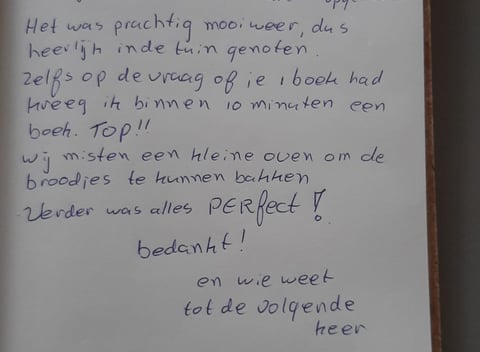 Het was prachtig mooi weer, dus
heerlijk in de tuin genoten.
Zelfs op de vraag of je 1 boek had
kreeg ik binnen 10 minuten een
boek. TOP!!
wij misten een kleine oven om de
broodjes te kunnen bakken
Verder was alles PERfect!
bedankt!
en wie weet
tot de volgende
keer